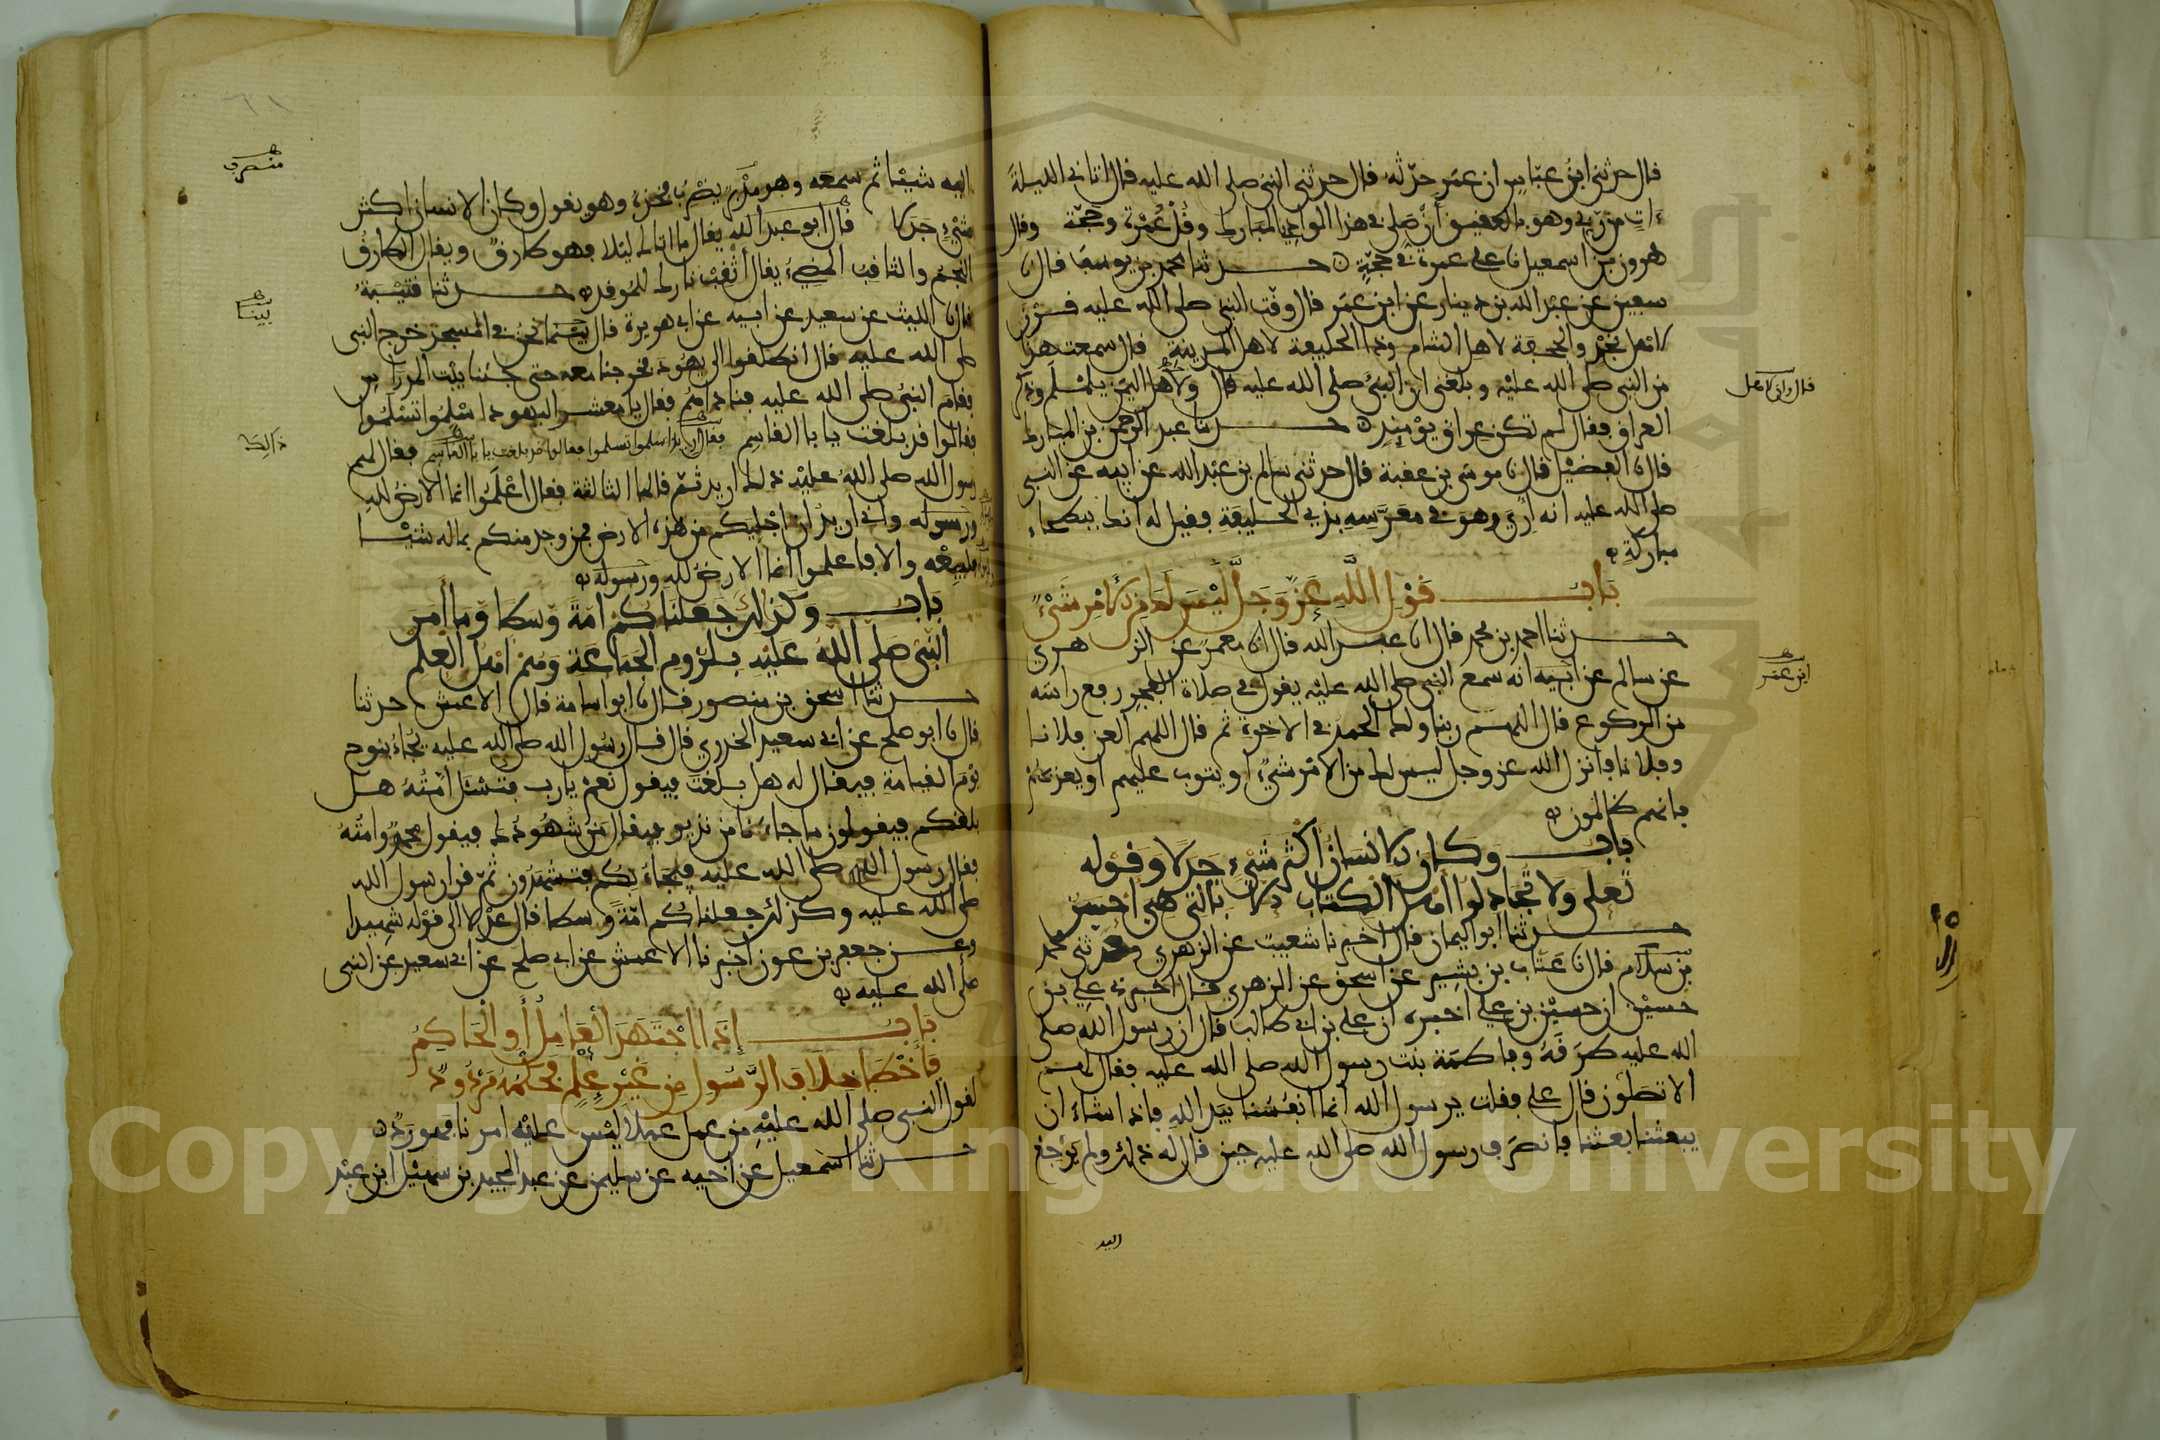 قال حدثني ابن عباس ان عمر حدثه قال حدثني النبي صلى الله عليه قال اتاني الليلة
ءات من ربي وهو بالعقيق أن صل في هذا الوادي المبارك وقل عمرة وحجة وقال
هرون بن اسمعيل نا علي عمرة في حجة حدثنا محمد بن يوسف قال نا
سفين عن عبد الله بن دينار عن ابن عمر قال وقت النبي صلى الله عليه قرن
لاهل نجد والجحفة لاهل الشام وذا الحليفة لاهل المدينة قال سمعت هذا
من النبي صلى الله عليه وبلغني ان النبي صلى الله عليه قال ولاهل اليمن يلملم وذكر
العراق فقال لم تكن عراق يومئذ حدثنا عبد الرحمن بن المبارك
قال نا الفضيل قال نا موسى بن عقبة قال حدثني سالم بن عبد الله عن ابيه عن النبي
صلى الله عليه انه أري وهو في معرسه بذي الحليفة فقيل له انك ببطحاء
مباركة
باب قول الله عز وجل ليس لك من الامر شيء
حدثنا احمد بن محمد قال انا عبد الله قال انا معمر عن الزهري
عن سالم عن ابيه انه سمع النبي صلى الله عليه يقول في صلاة الفجر رفع راسه
من الركوع قال اللهم ربنا ولك الحمد في الاخرة ثم قال اللهم العن فلانا
وفلانا فانزل الله عز وجل ليس لك من الامر شيء او يتوب عليهم او يعذبهم
فانهم ظالمون
باب وكان الانسان اكثر شيء جدلا وقوله
تعلى ولا تجادلوا اهل الكتاب الا بالتي هي احسن
حدثنا ابو اليمان قال اخبرنا شعيب عن الزهري وحدثني محمد
بن سلام قال نا عتاب بن بشير عن اسحق عن الزهري قال اخبرني علي بن
حسين ان حسين بن علي اخبره ان علي بن ابي طالب قال ان رسول الله صلى
الله عليه طرقه وفاطمة بنت رسول الله صلى الله عليه فقال لهم
الا تصلون قال علي فقلت يرسول الله انما انفسنا بيد الله فاذا شاء ان
يبعثنا بعثنا فانصرف رسول الله صلى الله عليه حين قال له ذلك ولم يرجع
اليه
ابن عمر
اليه شيئا ثم سمعه وهو مدبر يضرب فخذه وهو يقول وكان الانسان اكثر
شيء جدلا قال ابو عبد الله يقال ما اتاك ليلا فهو طارق ويقال الطارق
النجم والثاقب المضيء يقال أثقب نارك للموقد حدثنا قتيبة
قال نا الليث عن سعيد عن ابيه عن ابي هريرة قال بينما نحن في المسجد خرج النبي
صلى الله عليه فقال انطلقوا الى يهود فخرجنا معه حتى جئنا بيت المدراس
فقام النبي صلى الله عليه فناداهم فقال يا معشر اليهود اسلموا تسلموا
فقالوا قد بلغت يا با القاسم فقال اريد اسلموا تسلموا فقالوا قد بلغت يا با القاسم فقال لهم
رسول الله صلى الله عليه ذلك اريد ثم قالها الثالثة فقال اعلموا انما الارض لله
ورسوله واني اريد ان اجليكم من هذه الارض فمن وجد منكم بماله شيئا
فليبعه والا فاعلموا انما الارض لله ورسوله
باب وكذلك جعلناكم امة وسطا وما أمر
النبي صلى الله عليه بلزوم الجماعة وهم اهل العلم
حدثنا اسحق بن منصور قال نا ابو اسامة قال الاعمش حدثنا
قال نا ابو صلح عن ابي سعيد الخدري قال قال رسول الله صلى الله عليه يجاء بنوح
يوم القيامة فيقال له هل بلغت فيقول نعم يا رب فتسئل أمته هل
بلغكم فيقولون ما جاءنا من نذير فيقال من شهودك فيقول محمد وامته
فقال رسول الله صلى الله عليه فيجاء بكم فتشهدون ثم قرأ رسول الله
صلى الله عليه وكذلك جعلناكم امة وسطا قال عدلا الى قوله شهيدا
وعن جعفر بن عون اخبرنا الاعمش عن ابي صلح عن ابي سعيد عن النبي
صلى الله عليه
باب إذا اجتهد العامل أو الحاكم
فأخطأ خلاف الرسول من غير علم فحكمه مردود
لقول النبي صلى الله عليه من عمل عملا ليس عليه امرنا فهو رد
حدثنا اسمعيل عن اخيه عن سليمن عن عبد المجيد بن سهيل ابن عبد
منصرف
بينا
ذلك